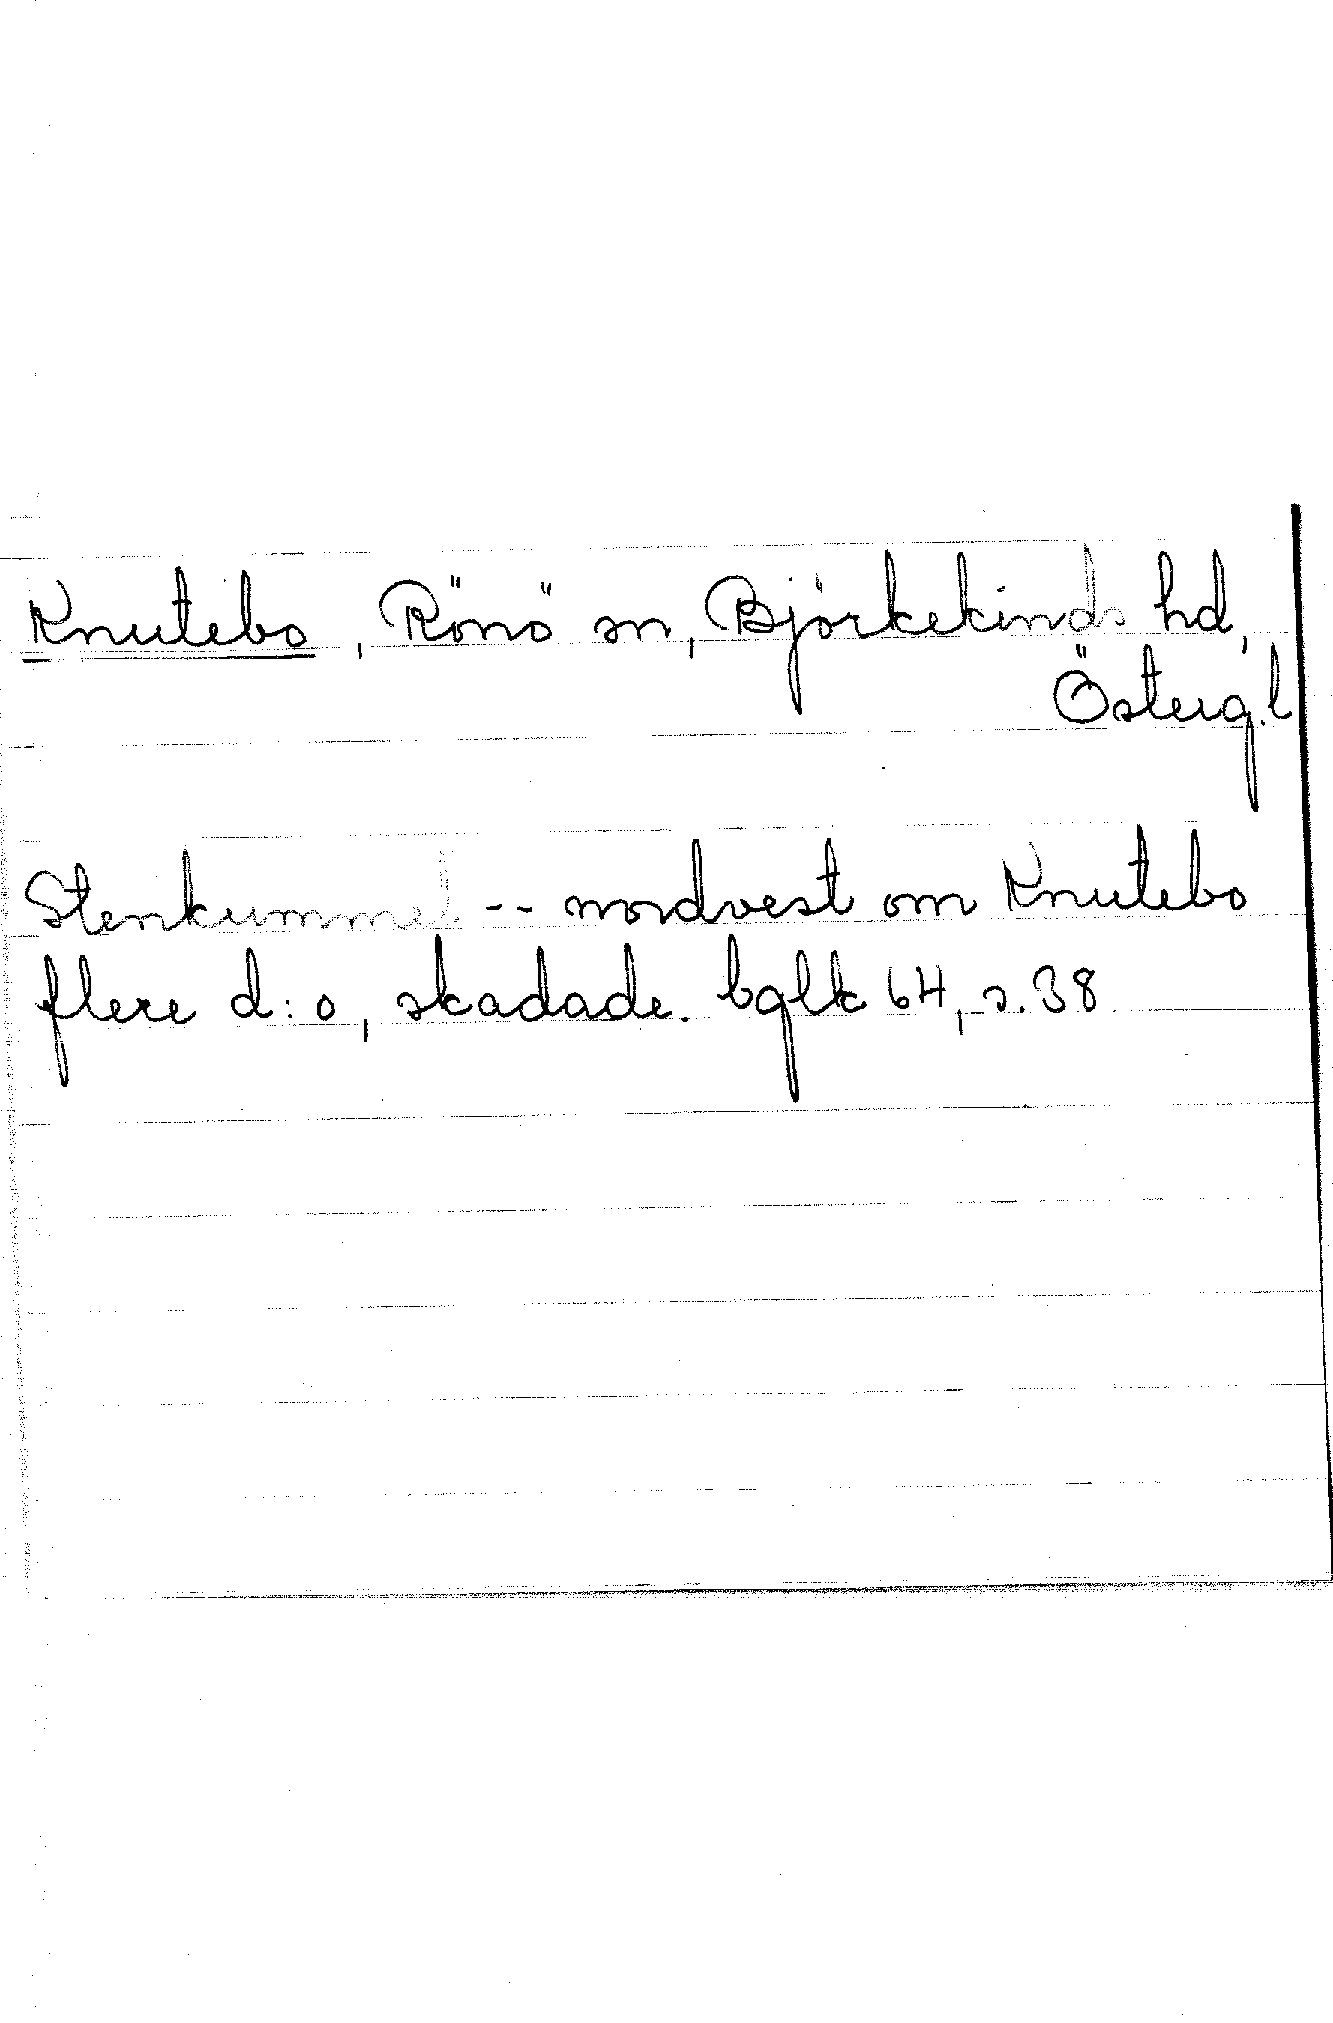 Knutebo, Rönö sn, Björkekinds hd,
Österg.l
Stenkummel -- nordvest om Knutebo
flere d:o, skadade. bglk 64, s. 38